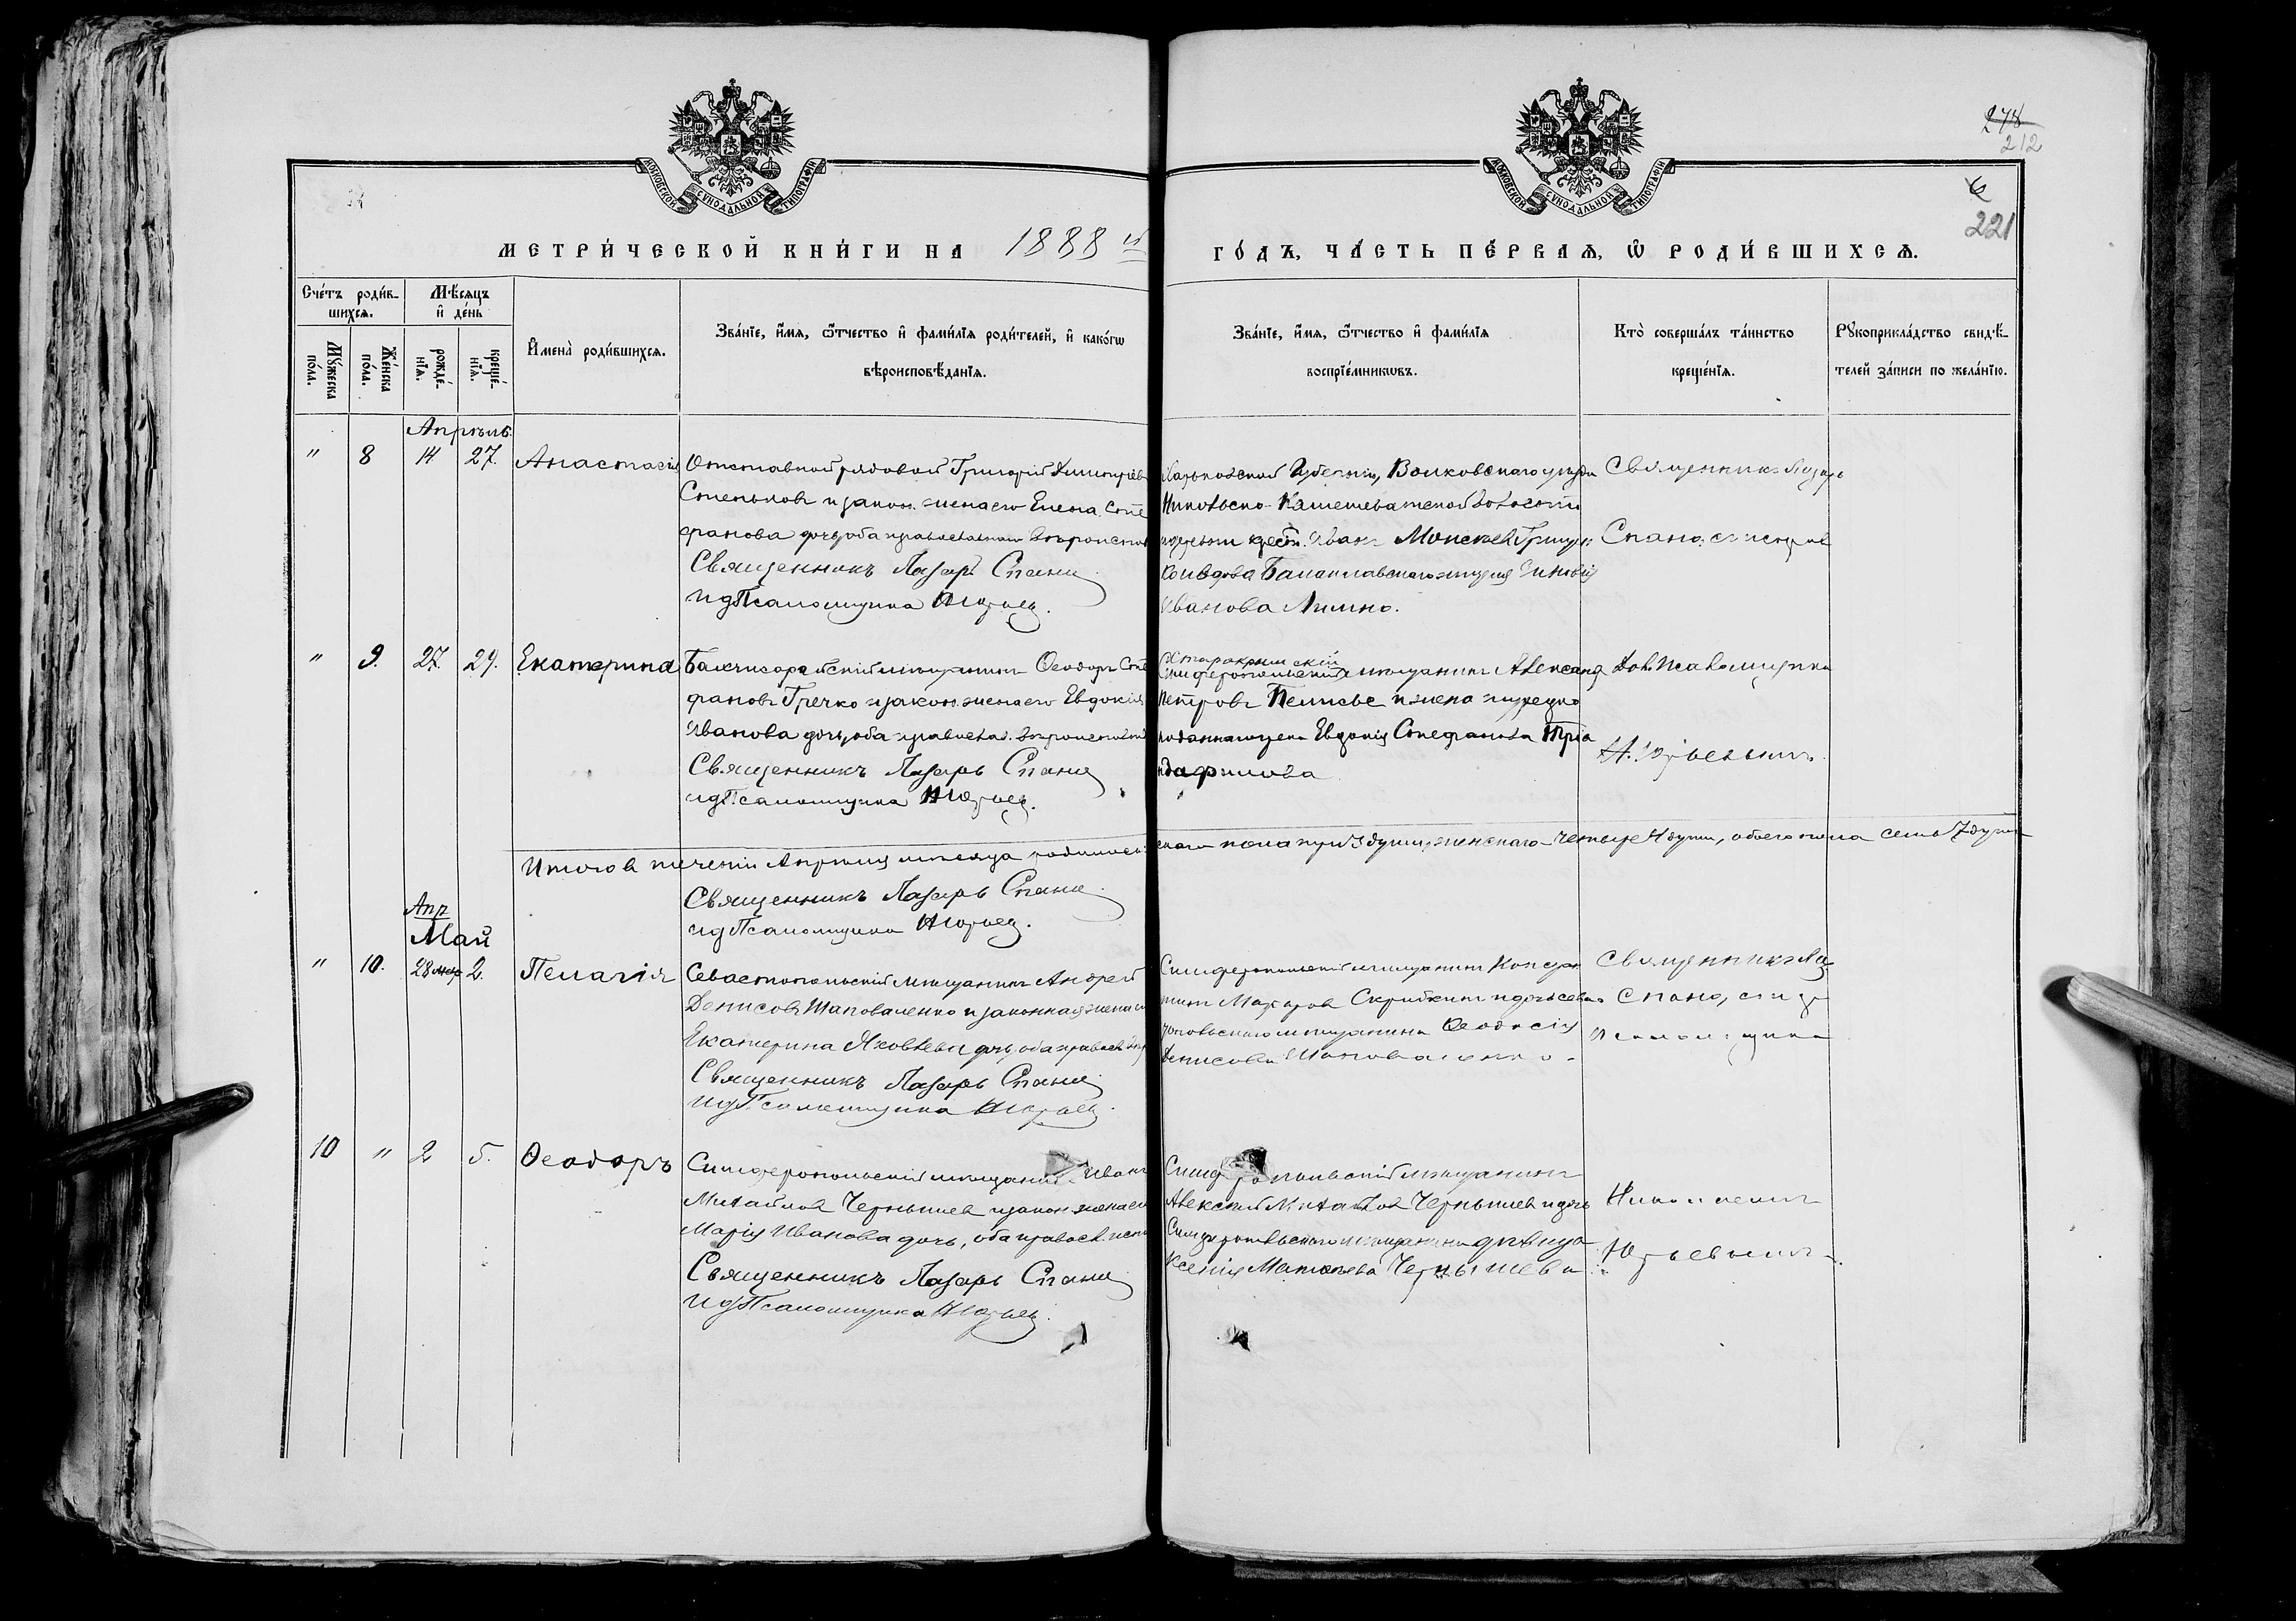 278
212
6
221
МОСКОВСКОЙ СУНОДАЛЬНОЙ ТИПОГРАФІИ
МОСКОВСКОЙ СУНОДАЛЬНОЙ ТИПОГРАФІИ
МЕТРИ́ЧЕСКОЙ КНИ́ГИ НА 1888 й
ГО́ДЪ, ЧА́СТЬ ПЕ́РВАѦ, Ѽ РОДИ́ВШИХСѦ.
Сче́тъ роди́в-
шихсѧ.
Мꙋ́жеска
по́ла.
Же́нска
по́ла.
Мѣ́сѧцъ
и҆ де́нь
рожде́-
нїѧ.
креще́-
нїѧ.
И҆мена̀ роди́вшихсѧ.
Зва́нїе, и҆́мѧ, ѻ҆́тчество и҆ фами́лїѧ роди́телей, и҆ како́гѡ
вѣроисповѣ́данїѧ.
Зва́нїе, и҆́мѧ, ѻ҆́тчество и҆ фами́лїѧ
воспрїе́мникѡвъ.
Кто̀ соверша́лъ та́инство
креще́нїѧ.
Рꙋкоприкла́дство свидѣ́-
телей за́писи по жела́нїю.
Апрѣль.
" 8 14 27. Анастасія
Отставной рядовой Григорій Димитріевъ
Стеньковъ и закон. жена его Елена Сте
фанова дочь, оба православнаго
Священникъ Лазарь Спани
и д Псаломщика Н Юрьев.
Харьковской Губерніи, Волковскаго уѣзда
волости
крест. Иванъ
вдова Балаклавскаго
Иванова
Священникъ Лазарь
Спано, съ
" 9. 27. 29. Екатерина
Бахчисарайскій мѣщанинъ Ѳеодоръ Сте
фановъ Гречко и закон. жена его Евдокія
Иванова дочь, оба правосл.
Священникъ Лазарь Спани
и д Псаломщика Н Юрьев.
Старокрымскій
Симферопольскій мѣщанинъ Александ
Петровъ и жена
Евдокія Стефанова Тріа
ндафилова
Псаломщика
Н. Юрьевымъ.
Итого въ теченіи Апрѣля мѣсяца родилось
скаго пола три 3 души, женскаго четыре 4 души, обоего пола семь 7 душъ
Священникъ Лазарь Спани
и д Псаломщика Н Юрьев.
Апр
Май
" 10. 28 2. Пелагія
Севастопольскій мѣщанинъ Андрей
Денисовъ Шаповаленко и законная жена его
Екатерина Яковлева дочь, оба правосл.
Священникъ Лазарь Спани
и д Псаломщика Н Юрьев.
Симферопольскій мѣщанинъ Констан
тинъ и дочь Севас
топольскаго мѣщанина Ѳеодосія
Денисова Шаповаленко.
Священникъ Ла
Спано, съ
Псаломщика
10 " 2 5. Ѳеодоръ
Симферопольскій мѣщанинъ Иванъ
Михайловъ Чернышев и закон. жена его
Марія Иванова дочь, оба правосл.
Священникъ Лазарь Спани
и д Псаломщика Н Юрьев.
Симферопольскій мѣщанинъ
Алексѣй Михайлов Чернышев и дочь
Симферопольскаго мѣщанина дѣвица
Ксенія Матвѣева Чернышева.
Николаемъ
Юрьевымъ.